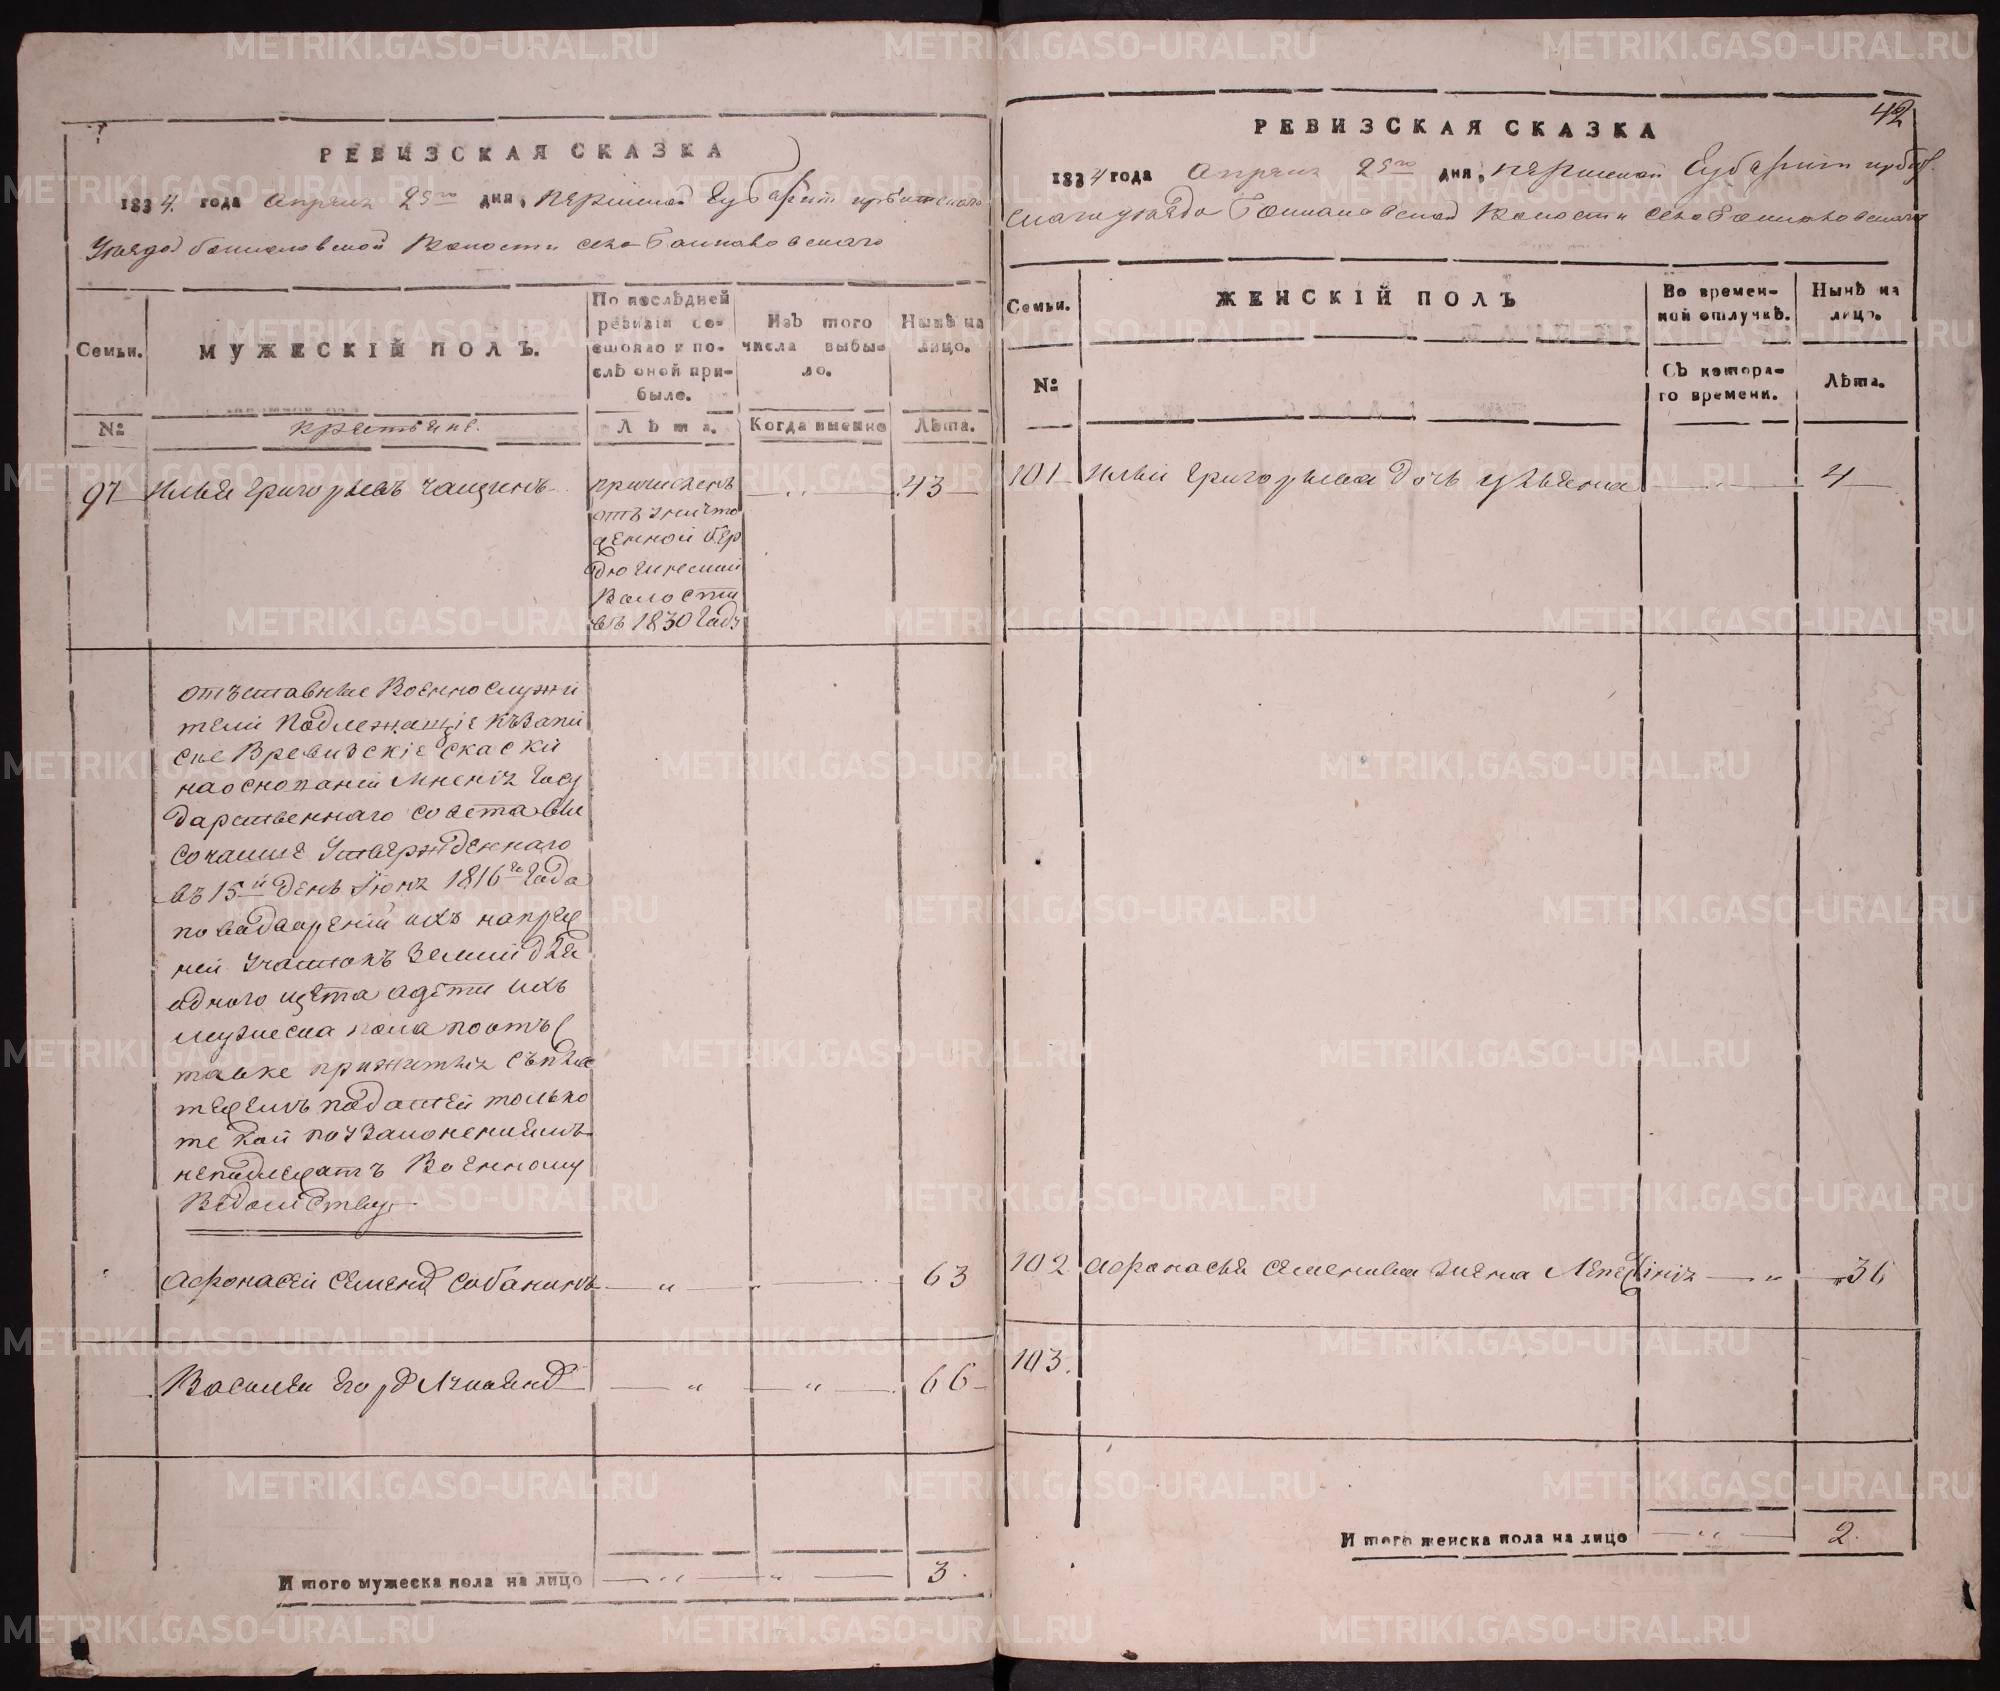 РЕВИЗСКАЯ СКАЗКА
1834. года Апреля 25го дня, Пермской Губернiи Ирбитскаго
Уезда Волости села
Семьи.
МУЖЕСКIЙ ПОЛЪ.
По послѣдней ревизiи состояло и послѣ оной прибыло.
Изъ того числа выбыло.
Нынѣ на лицо.
№
крестьяне.
Лѣта.
Когда именно
Лѣта.
97 Илья Григорьевъ Чащинъ
причисленъ
отъ уничто
женной бер
дюгинской
Волости
въ 1830 Году
43
отъставные Военнослужи
тели Подлежащiе къ запи
ске Времизскiе скаски
на основанiи мненiя Госу
дарственнаго совета вы
сочаише Утвержденнаго
въ 15й день Iюня 1816го Года
по водворенiи ихъ на преж
ней участокъ земли для
одного щета а дети ихъ
мужеска пола по отъс
тавке прижитыя съ пла
тежемъ податей только
те кои по узаконениямъ
неподлежатъ Военному
Ведомству
Афонасей Семенов Собанинъ
63
Василеи Егоров
66
Итого мужеска пола на лицо
3.
42
РЕВИЗСКАЯ СКАЗКА
1834 года Апреля 25го дня, Пермской Губернiи Ирбит
скаго уезда Волости села
Семьи.
ЖЕНСКIЙ ПОЛЪ
Во временной отлучкѣ.
Нынѣ на лицо.
№
Съ котораго времени.
Лѣта.
101 Ильи Григорьева дочь Ульяна
4
102 Афонасья Семенова жена
36
103.
Итого женска пола на лицо
2.
METRIKI.GASO-URAL.RU